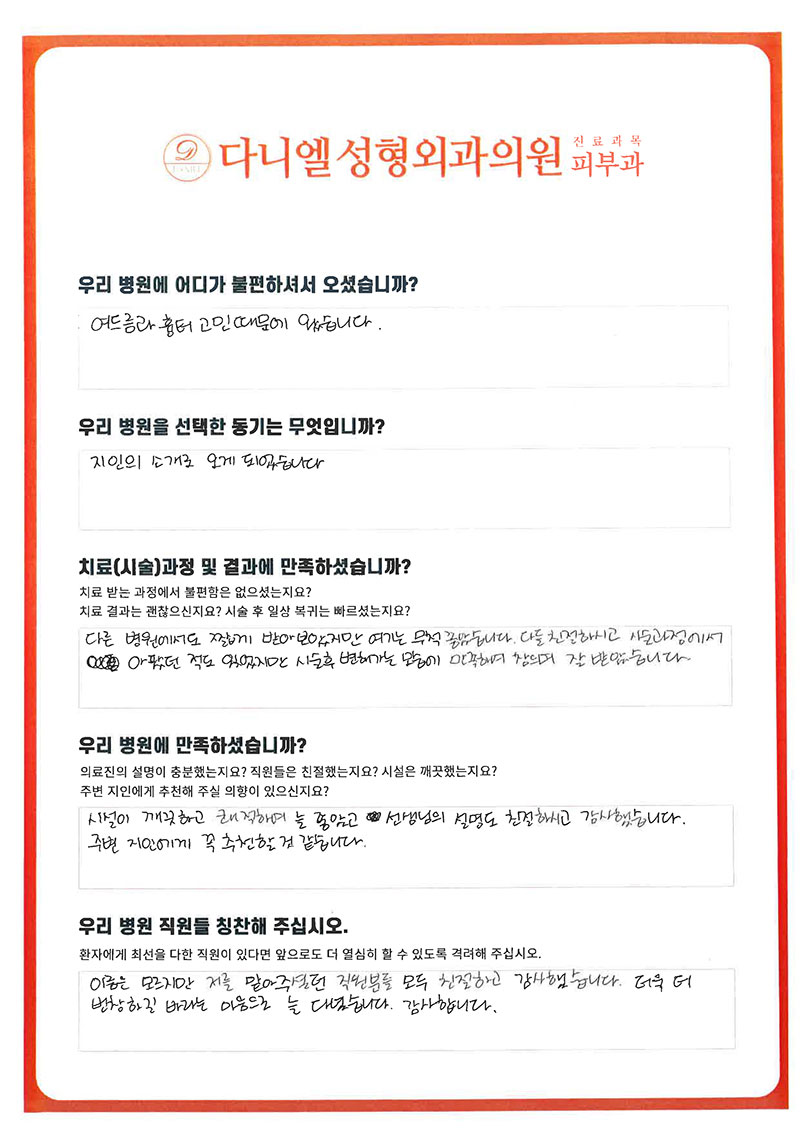 다니엘성형외과의원 진료과목 피부과
우리 병원에 어디가 불편하셔서 오셨습니까?
여드름과 흉터 고민때문에 왔습니다.
우리 병원을 선택한 동기는 무엇입니까?
지인의 소개로 오게 되었습니다
치료(시술)과정 및 결과에 만족하셨습니까?
치료 받는 과정에서 불편함은 없으셨는지요?
치료 결과는 괜찮으신지요? 시술 후 일상 복귀는 빠르셨는지요?
다른 병원에서도 짧게 받아보았지만 여기는 무척 좋았습니다. 다들 친절하시고 시술과정에서
아팠던 적도 있었지만 시술후 변해가는 모습에 만족하며 참으며 잘 받았습니다.
우리 병원에 만족하셨습니까?
의료진의 설명이 충분했는지요? 직원들은 친절했는지요? 시설은 깨끗했는지요?
주변 지인에게 추천해 주실 의향이 있으신지요?
시설이 깨끗하고 쾌적하며 늘 좋았고 선생님의 설명도 친절하시고 감사했습니다.
주변 지인에게 꼭 추천할 것 같습니다.
우리 병원 직원들 칭찬해 주십시오.
환자에게 최선을 다한 직원이 있다면 앞으로도 더 열심히 할 수 있도록 격려해 주십시오.
이름은 모르지만 저를 맡아주셨던 직원분들 모두 친절하고 감사했습니다. 더욱 더
번창하길 바라는 마음으로 늘 대했습니다. 감사합니다.